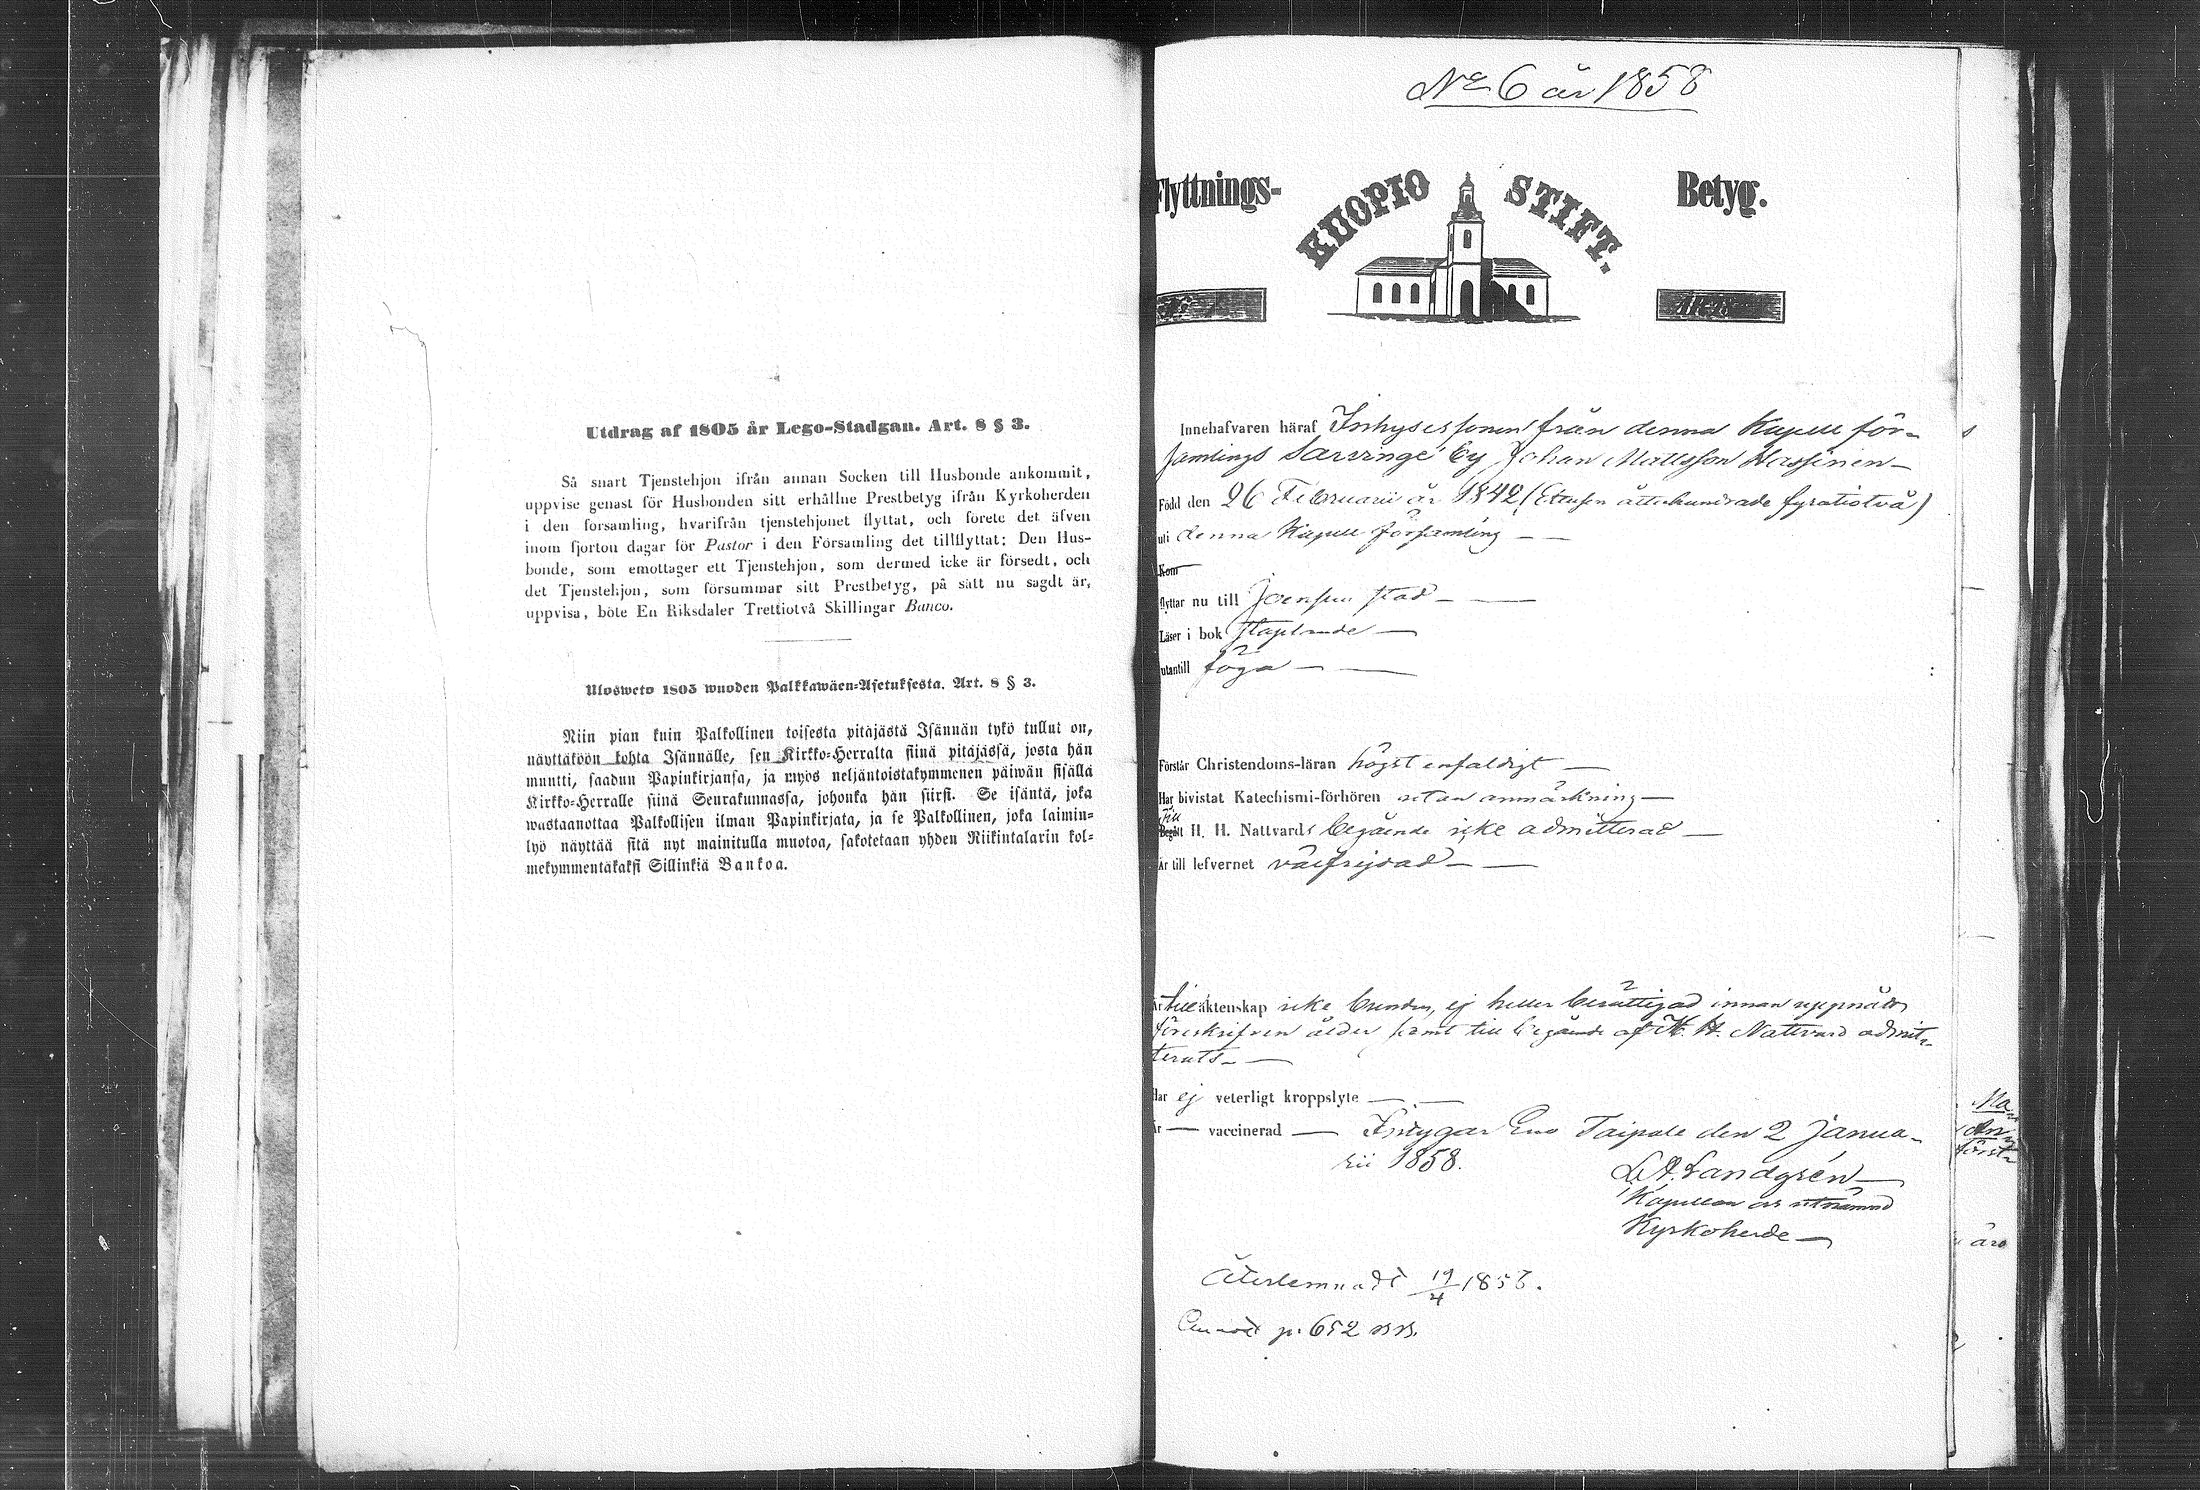 Utdrag af 1805 år Lego-Stadgan. Art. 8 § 3.
Så snart Tjenstehjon ifrån annan Socken till Husbonde ankommit,
uppvise genast för Husbonden sitt erhållne Prestbetyg ifrån Kyrkoherden
i den forsamling, hvarifrån tjenstehjonet flyttat, och förete det äfven
inom fjorton dagar för Pastor i den Församling det tillflyttat; Den Hus-
bonde, som emottager ett Tjenstehjon, som dermed icke är försedt, och
det Tjenstehjon, som försummar sitt Prestbetyg, på sätt nu sagdt är,
uppvisa, böte En Riksdaler Trettiotvå Skillingar Banco.
Ulosweto 1805 wuoden Palkkawäen-Asetuksesta. Art. 8 § 3.
Niin pian kuin Palkollinen toisesta pitäjästä Isännän tykö tullut on,
näyttäköön kohta Isännälle, sen Kirkko-Herralta siinä pitäjässä, josta hän
muutti, saadun Papinkirjansa, ja myös neljäntoistakymmenen päiwän sisällä
Kirkko-Herralle siinä Seurakunnassa, johonka hän siirsi. Se isäntä, joka
wastaanottaa Palkollisen ilman Papinkirjata, ja se Palkollinen, joka laimin-
lyö näyttää sitä nyt mainitulla muotoa, sakotetaan yhden Riikintalarin kol-
mekymmentäkaksi Sillinkiä Bankoa.
No 6 år 1858
Flyttnings- KUOPIO STIFT. Betyg.
Innehafvaren häraf Inhysessonen från denna Kapell för-
samlings Sarvinge By Johan Mattsson Hassinen
Född den 26 Februarii år 1842 (Ettusen åttahundrade fyratiotvå)
uti denna Kapell församling
Kom
flyttar nu till Joensuu stad
Läser i bok staplande
utantill föga
Förstår Christendoms-läran högst enfaldigt
Har bivistat Katechismi-förhören utan anmärkning
Till
Begått H. H. Nattvards begående icke admitterad
Är till lefvernet välfrejdad
Är till äktenskap icke bunden, ej heller berättigad innan uppnådd
föreskrifven ålder samt till begående af H. H. Nattvard admit-
terats
Har ej veterligt kroppslyte
Är vaccinerad Intygar Eno Taipale den 2 Janua-
rii 1858.
L. A. Sandgrén
Kapellan och utnämnd
Kyrkoherde
Återlemnadt 19/4 1858.
p. 652
Ma
An
först
äro